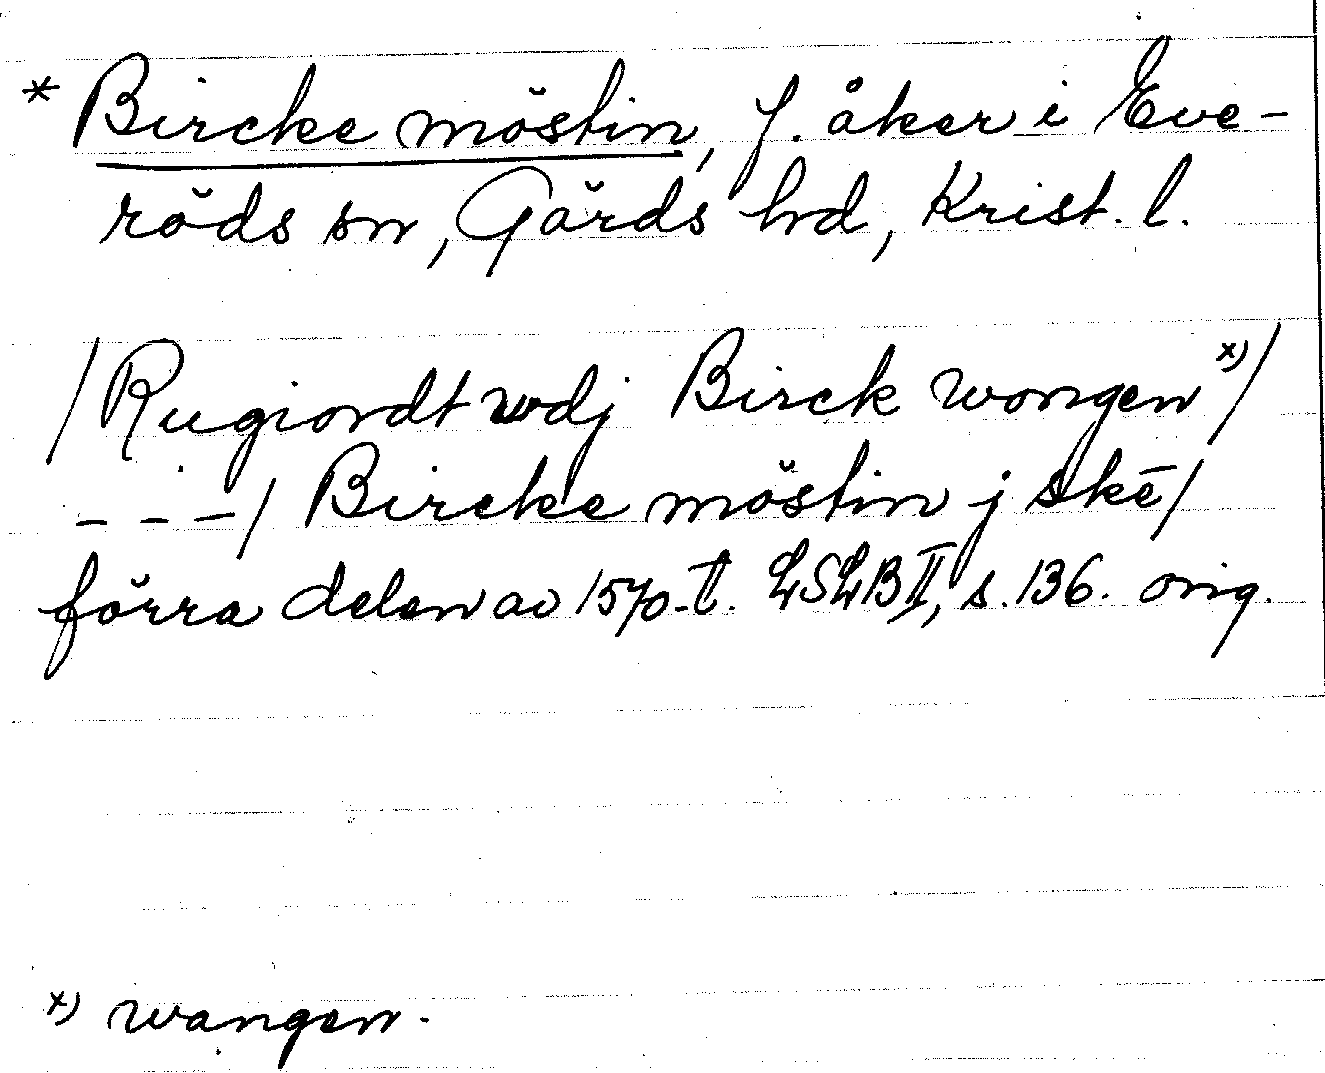 * Bircke möstin, f. åker i Eve-
röds sn, Gärds hd, Krist. l.
/Rugiordt wdj Birck wongen x)/
- - -/ Bircke möstin j skē/
förra delen av 1570-t. LSLB II, s. 136. orig.
x) wangen.